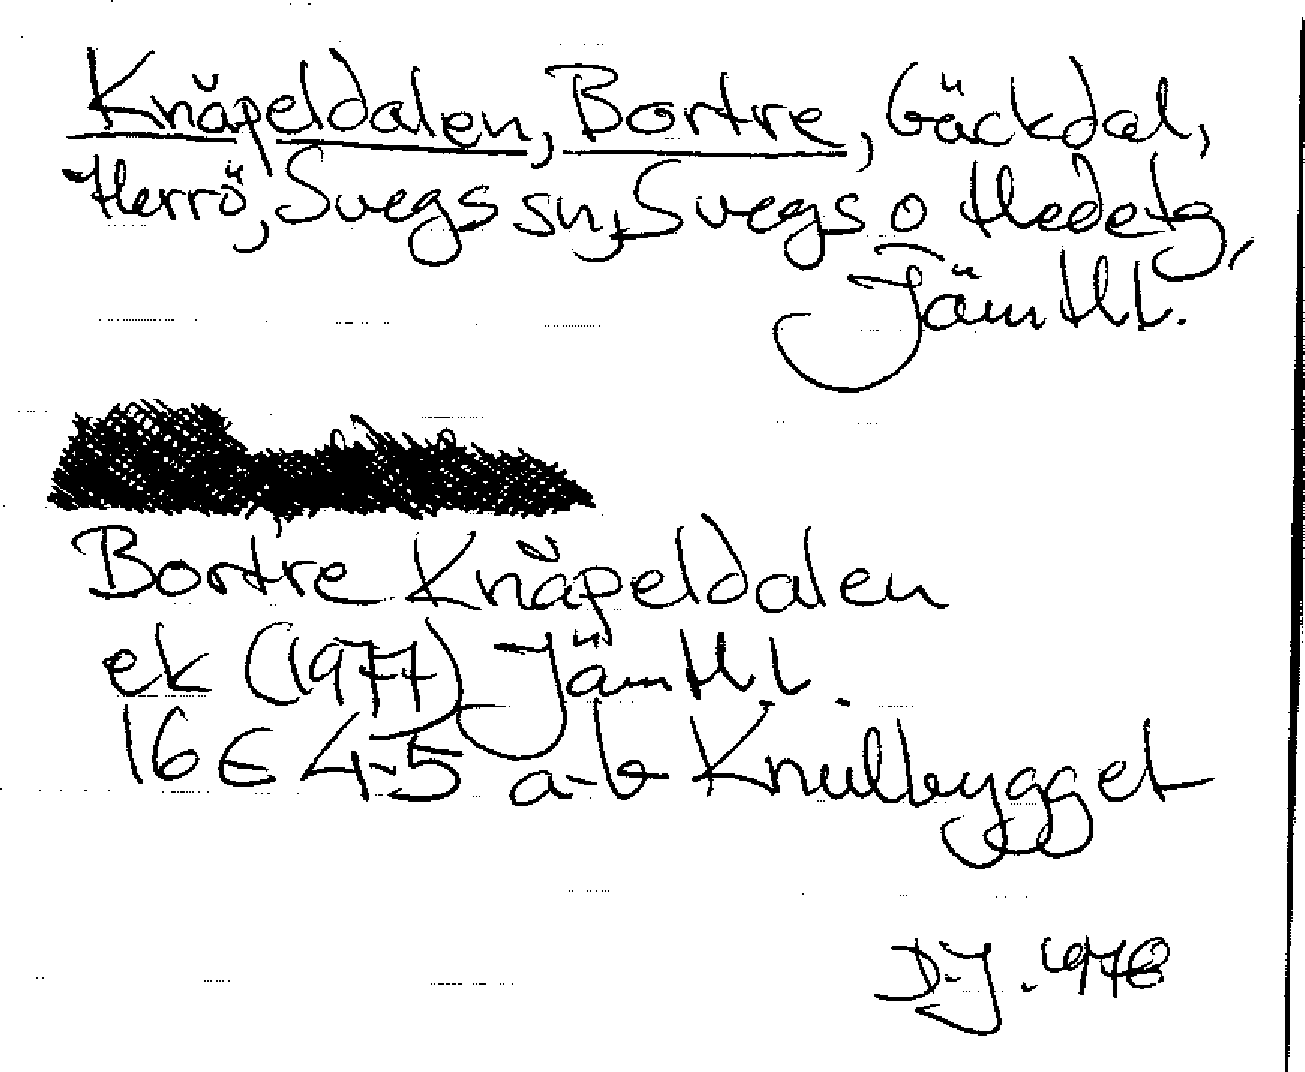 Knäpeldalen, Bortre, Gäckdal,
Herrö, Svegs sn, Svegs o Hedetg,
Jämtl.
Bortre Knäpeldalen
ek (1977) Jämtl.
16E 4-5 a-b Knullbygget
D.J. 1978